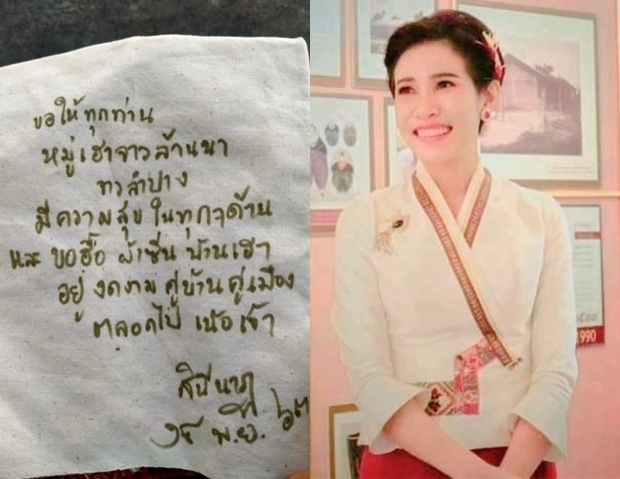 ขอให้ทุกท่าน
หมู่เฮาจาวล้านนา
ทวลำปาง
มีความสุขในทุกๆด้าน
และ ขอฮื้อ ผ้าซิ่น บ้านเฮา
อยู่ งดงาม คู่บ้านคู่เมือง
ตลอดไป เน้อ เจ้า
สินีนาฏ
พ.ย. ๖๓
1990